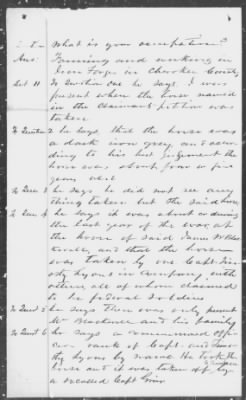 What is your occupation?
Ans Farming and working in
Iron Forge in Cherokee County
To question one he says I was
present when the horse named
in the Claimant's petition was
taken
To Question 2 he says, that the horse was
a dark iron grey, and accor-
ding to his best judgement the
horse was about four or five
years old
To Ques 3 he says he did not see any
thing taken but the said horse
To Ques 4 he says it was about or during
the last year of the war, at
the house of said James
and that the horse
was taken by one Capt Tim-
othy Lyons in company, with
others, all of whom claimed
to be federal soldiers
To Quest 5 he says there was only present
Mr Blackwell and his family
To Quest 6 he says a commissioned offi-
cer rank of Capt. and Timo-
thy Lyons by name. He took the
horse and it was taken off by
a so called Capt